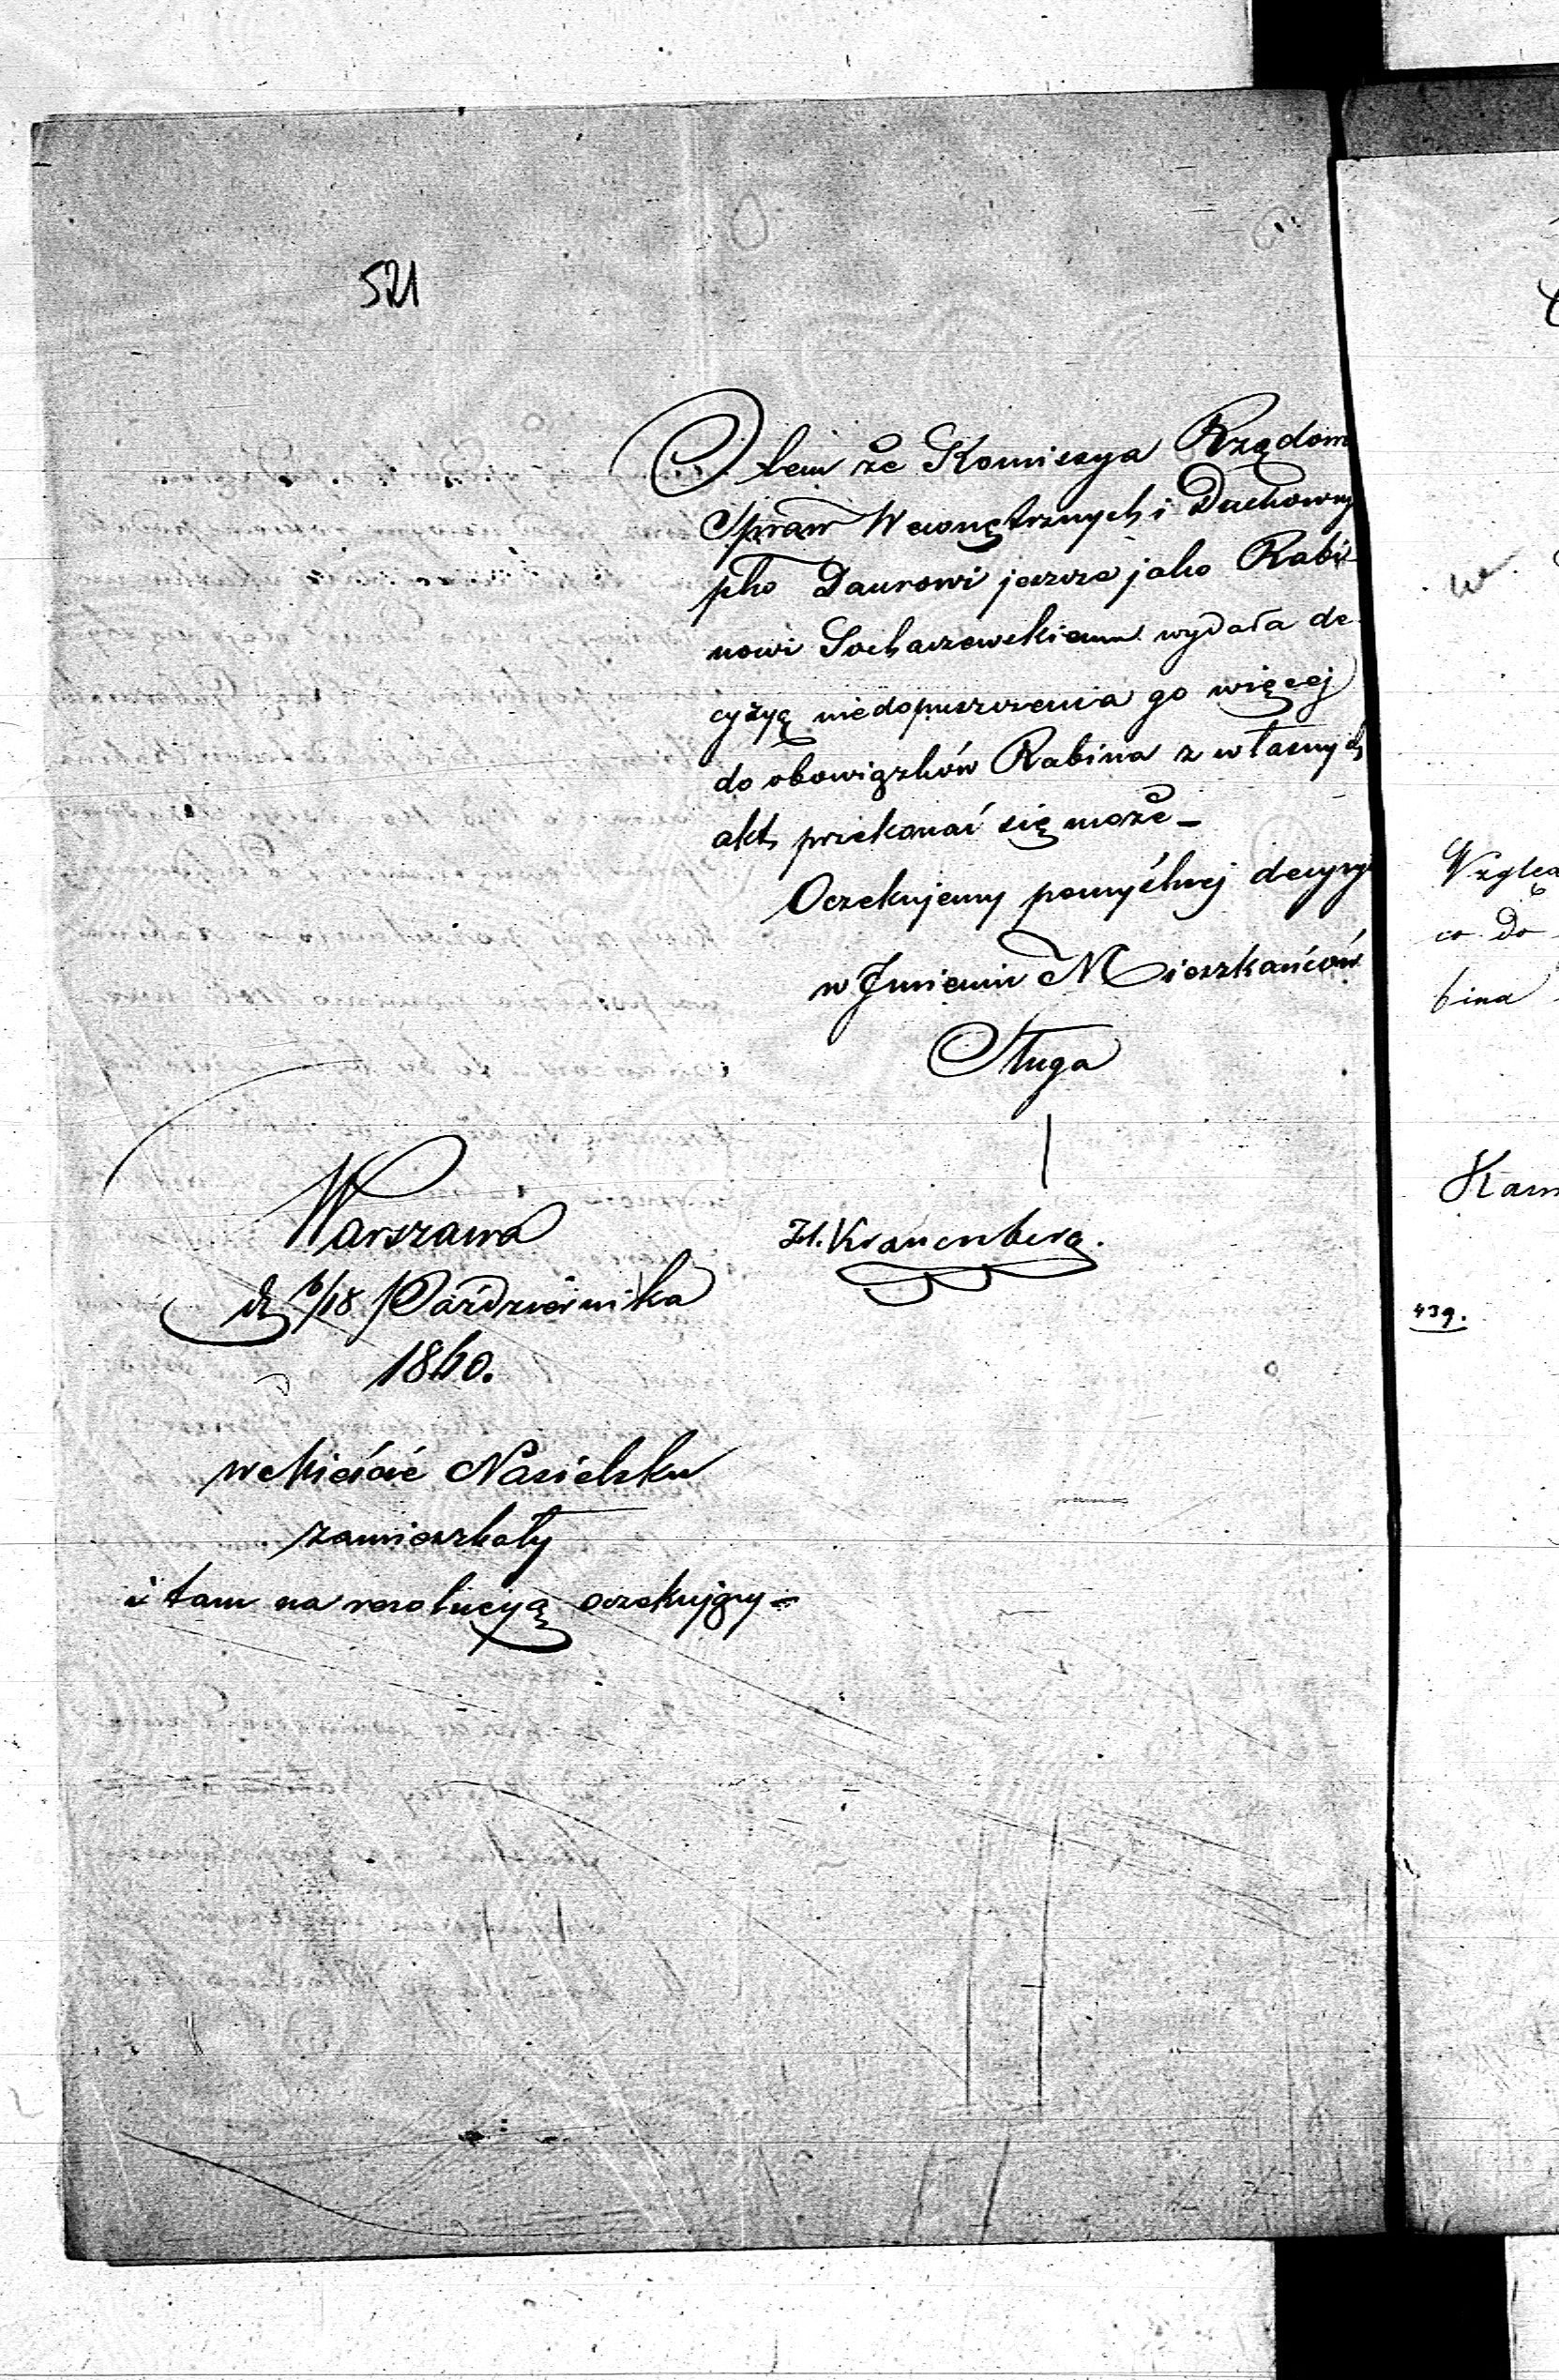 521
O tem że Komissya Rządow
Spraw Wewnętrznych i Duchowny
pko Daurowi jeszcze jako Rabi-
nowi Sochaczewskiemu wydała de-
cyzyą niedopuszczenia go więcej
do obowiązków Rabina z własnych
akt, przekonać się może –
Oczekujemy pomyślnej decyzyi
w Imieniu Mieszkańców
Sługa
H. Kranenberg.
Warszawa
d. 6/18 Października
1860.
w Mieście Nasielsku
zamieszkały
i tam na rezolucyą oczekujący –
Względ
co do
bina
Kam
439.